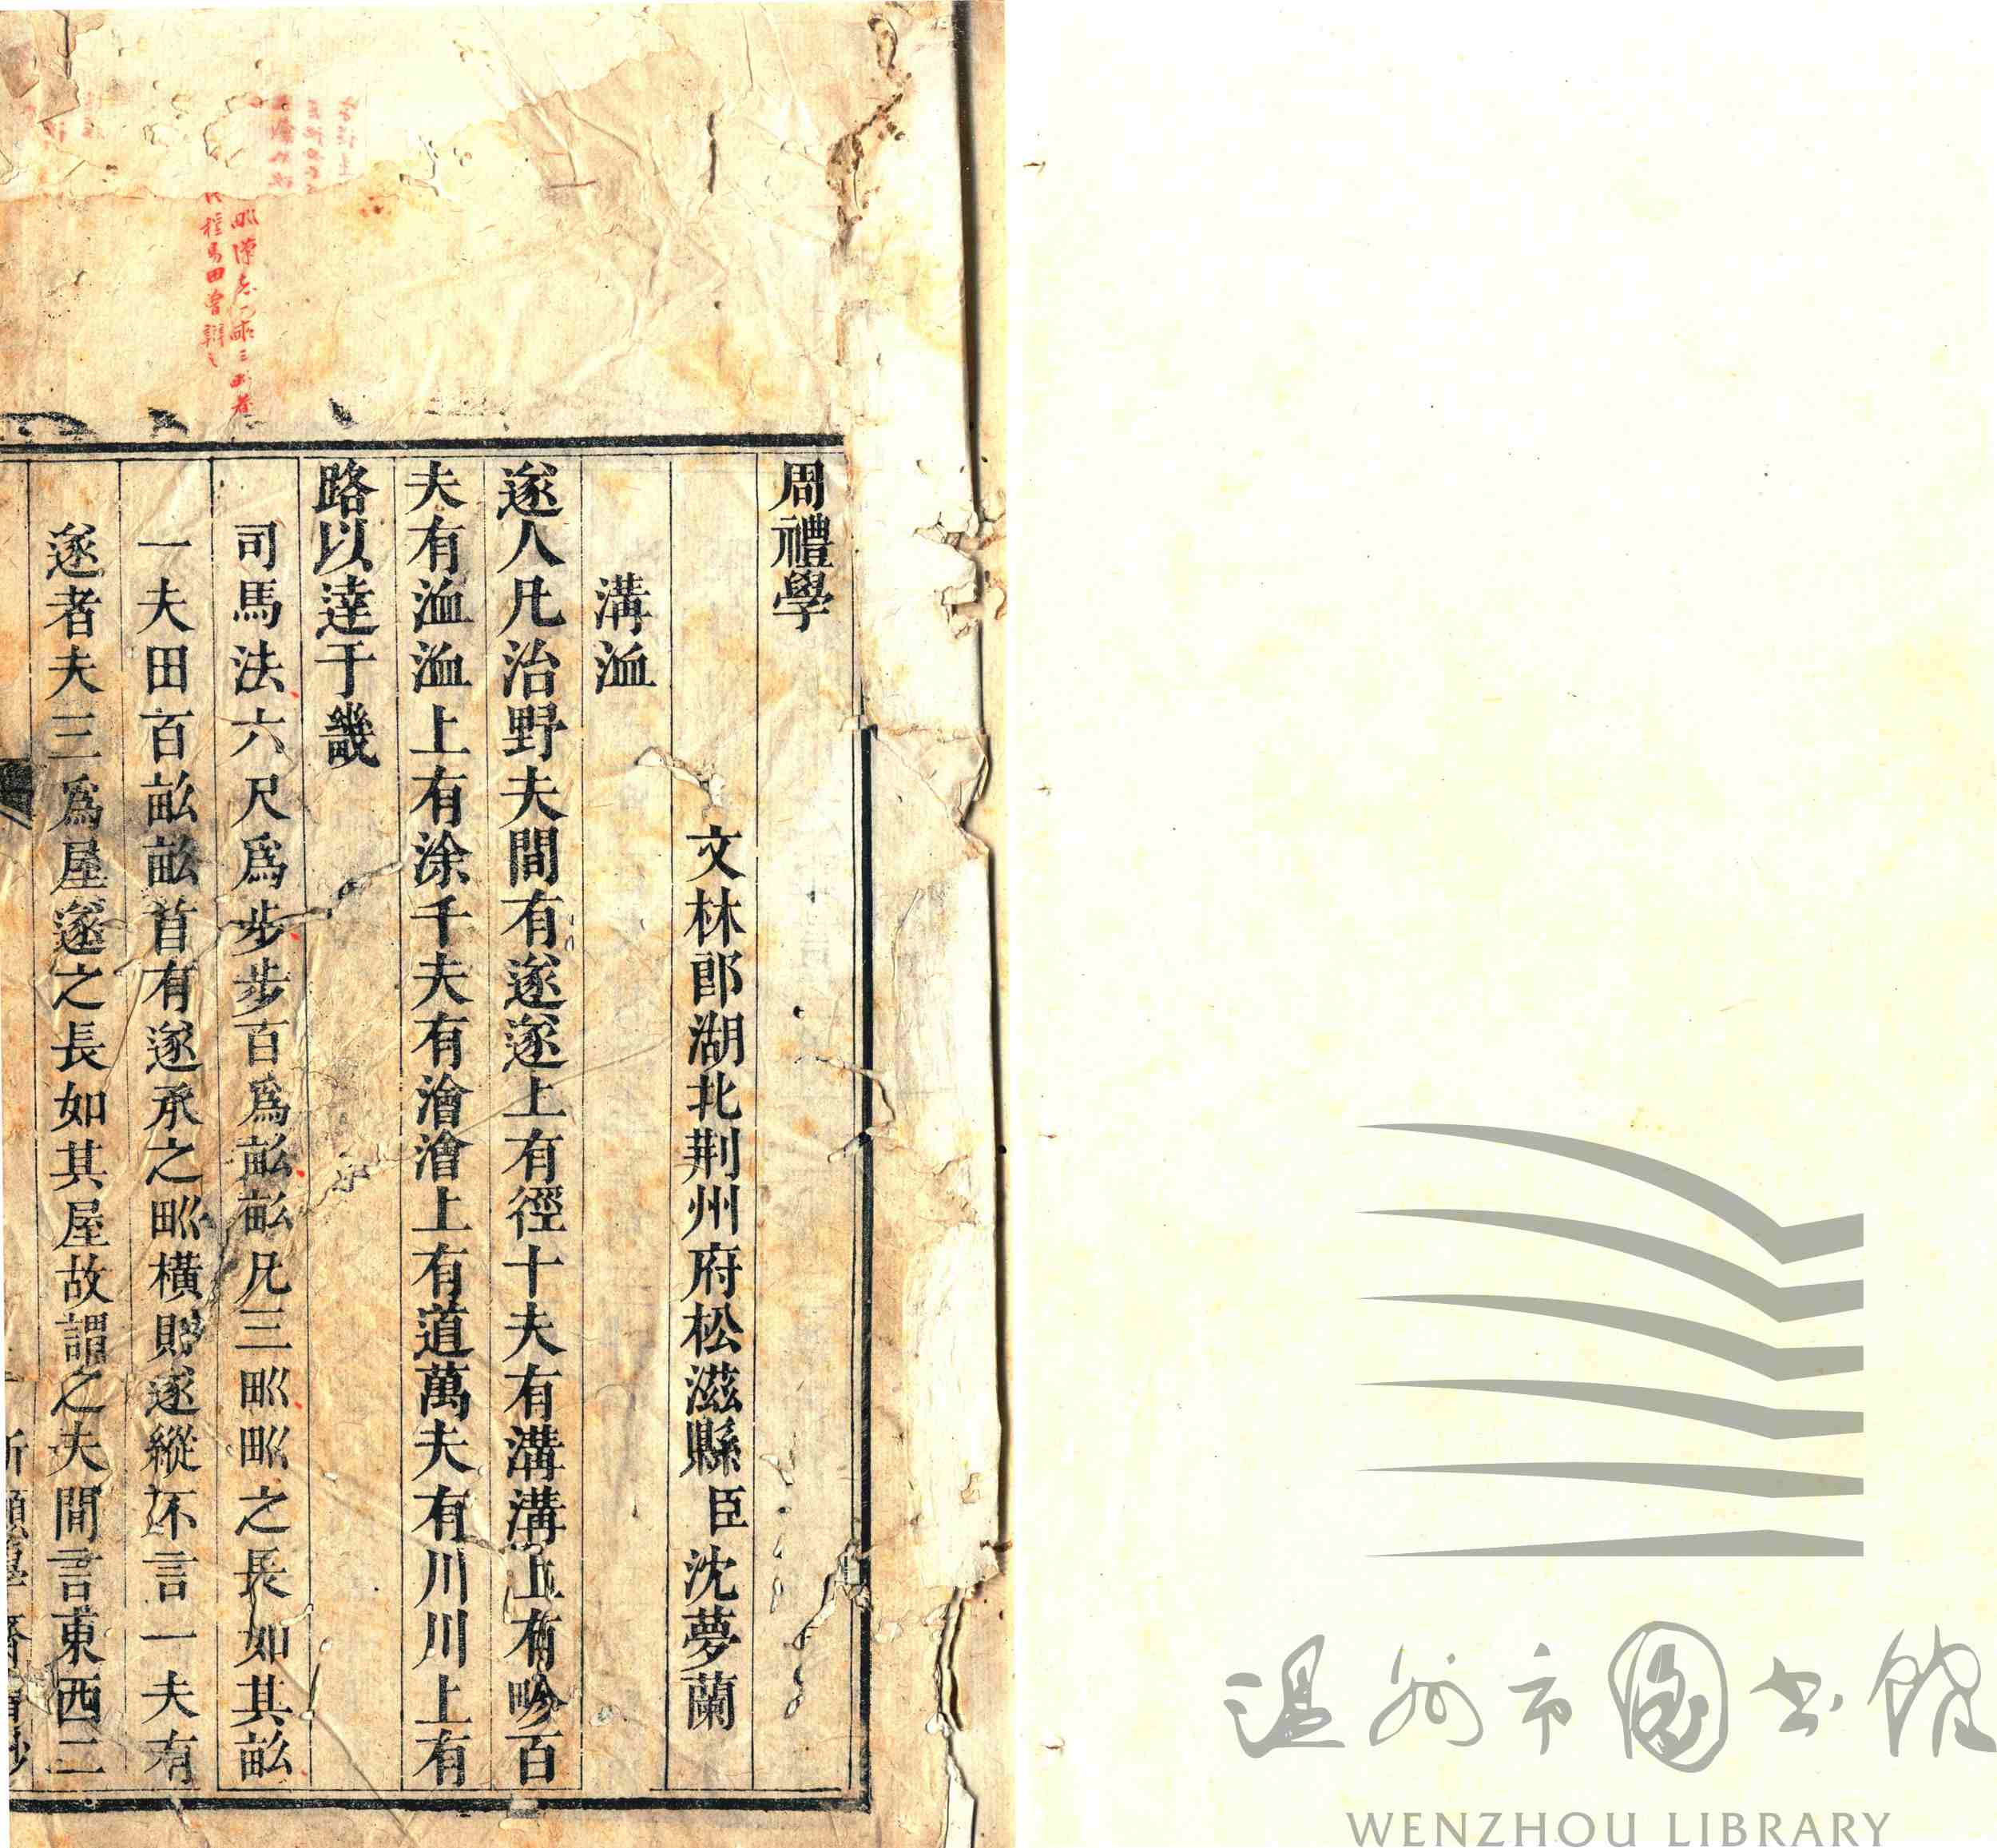 周禮學
文林郎湖北荆州府松滋縣臣沈夢蘭
溝洫
遂人凡治野夫間有遂遂上有徑十夫有溝溝上有畛百
夫有洫洫上有涂千夫有澮澮上有道萬夫有川川上有
路以達于畿
司馬法六尺爲步步百爲畝畝凡三甽甽之長如其畝
一夫田百畝畝首有遂承之甽橫則遂縱不言一夫有
遂者夫三爲屋遂之長如其屋故謂之夫間言東西二
所願學齋
程易田曾辯之
温州市图书馆
WENZHOU LIBRARY